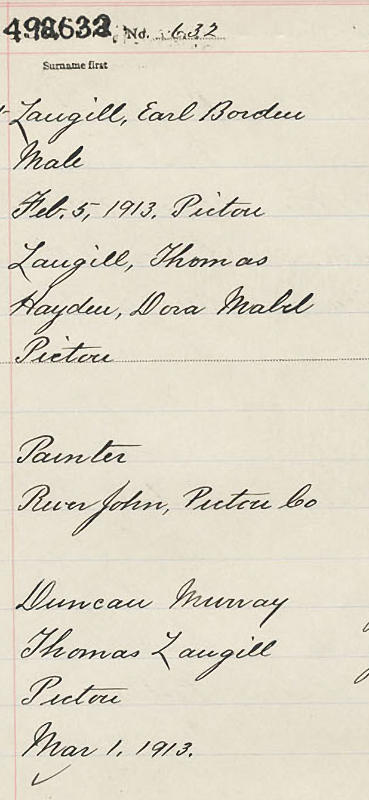 No. 632
Surname first
Langill, Earl Borden
Male
Feb. 5, 1913. Pictou
Langill, Thomas
Hayden, Dora Mabel
Pictou
Painter
River John, Pictou Co
Duncan Murray
Thomas Langill
Pictou
Mar 1, 1913.